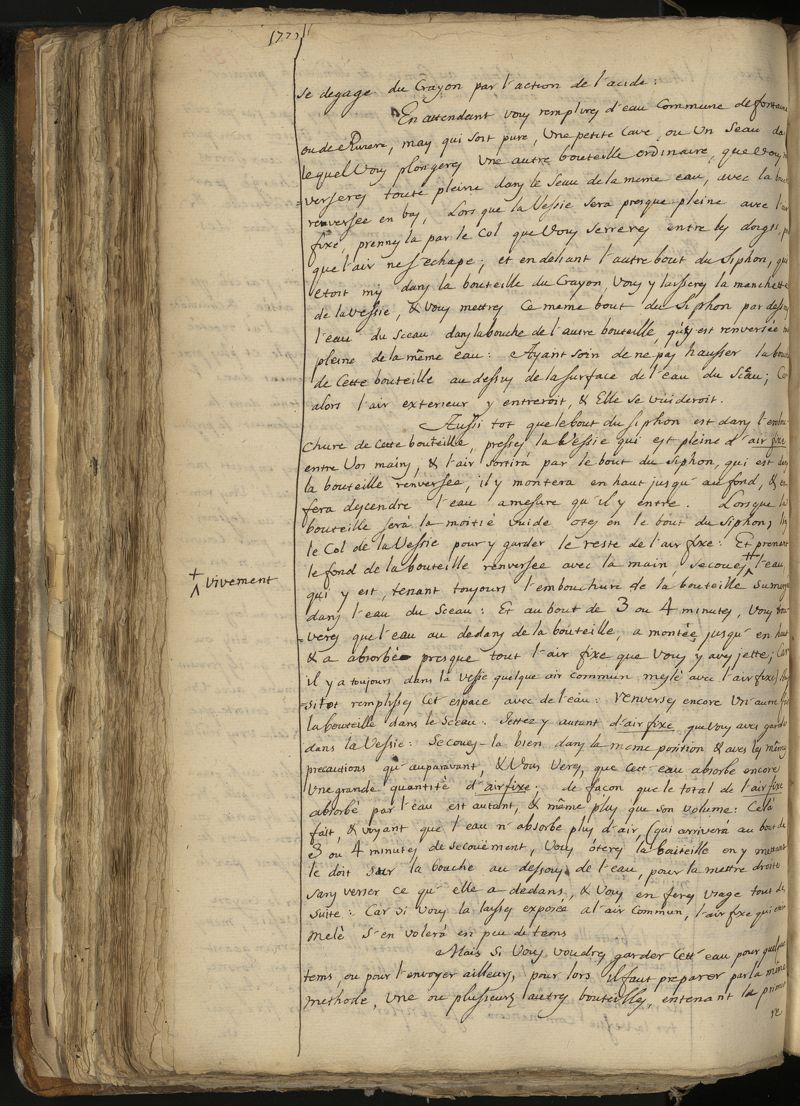 se degage du Crayon par l'action de l'acide:
En attendant vous remplires d'eau Commune de fontaine
ou de Riviere, mais qui soit pure, Une petite Cave, ou Un Seau da
lequel Vous plongeres Une autre bouteille ordinaire, que Vous
verseres toute pleine dans le Seau de la meme eau, avec la bou
renversée en bas, Lors que la Vessie sera presque pleine avec l'air
fixe, prennes la par le Col que Vous serreres entre les doigts, p
que l'air ne s'echape; et en deliant l'autre bout du Siphon, qui
etoit mis dans la bouteille du Crayon, Vous y laisseres la manchette
de la Vessie, & Vous mettres Ce meme bout du Siphon par dessous
l'eau du Sceau dans la bouche de l'autre bouteille, qui y est renversée
pleine de la même eau: Ayant soin de ne pas hausser la bouche
de Cette bouteille au dessus de la surface de l'eau du Scêau; Car
alors l'air exterieur y entreroit, & Elle se vuideroit.
Aussi tot que le bout du Siphon est dans l'embou
chure de Cette bouteille, presses la Vessie qui est pleine d'air fixe
entre Vos mains, & l'air Sortirá par le bout du Siphon, qui est dans
la bouteille renversée, il y monterá en haut jusqu'au fond, & en
fera descendre l'eau amesure qu'il y entre. Lorsque la
bouteille serà la moitié vuide otes en le bout du Siphon; lies
le Col de la Vessie pour y garder le reste de l'air fixe: Et prenant
le fond de la bouteille renversée avec la main Secoues l'eau,
+ vivement
qui y est, tenant toujours l'embouchure de la bouteille
dans l'eau du Sceau: Et au bout de 3 ou 4 minutes, Vous trou
veres que l'eau au dedans de la bouteille, a montée jusqu'en haut
& a absorbé presque tout l'air fixe que Vous y aves jetté; Car
il y a toujours dans la Vessie quelque air commun meslé avec l'air fixe
sitôt remplisses Cet espace avec de l'eau: renverses encore Un autre fois
la bouteille dans le Sceau: Jettes y autant d'air fixe que Vous aves gardé
dans la Vessie: Secoues-la bien dans la meme position & aves les mêmes
precautions qu'auparavant, & Vous Veres, que Cett eau absorbe encore
Une grande quantité d'air fixe; de façon que le total de l'air fixe
absorbé par l'eau est autant, & même plus que son volume: Celà
fait, & voyant que l'eau n'absorbe plus d'air (qui arriverá au bout de
3 ou 4 minutes de secouement, Vous oteres la bouteille en y mettant
le doit sur la bouche au dessous de l'eau, pour la mettre droite
sans verser ce qu'elle a dedans, & Vous en feres Usage tout de
suite: Car si Vous la laisses exposée a l'air Commun, l'air fixe qui
melé S'en volerá en peu de tems
Mais si Vous voudres garder Cett eau pour quelque
tems ou pour l'envoyer ailleurs, pour lors il faut preparer par la même
methode, Une ou plusieurs autres bouteilles, en tenant la premie
re